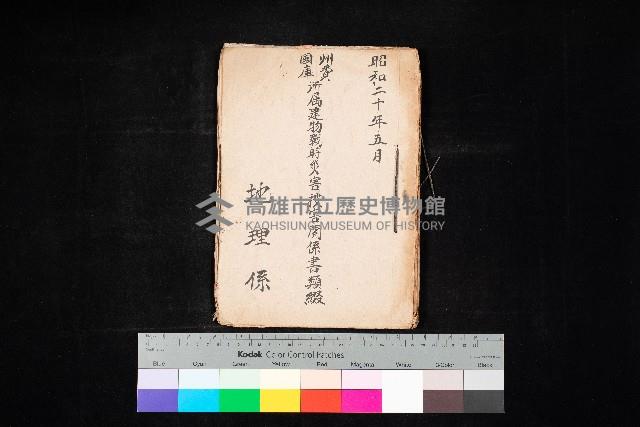 昭和二十年五月
州費
國庫
所属建物戰時災害被害関係書類綴
地理係
高雄市立歷史博物館
KAOHSIUNG MUSEUM OF HISTORY
Kodak Color Control Patches
Blue Cyan Green Yellow Red Magenta White 3-Color Black